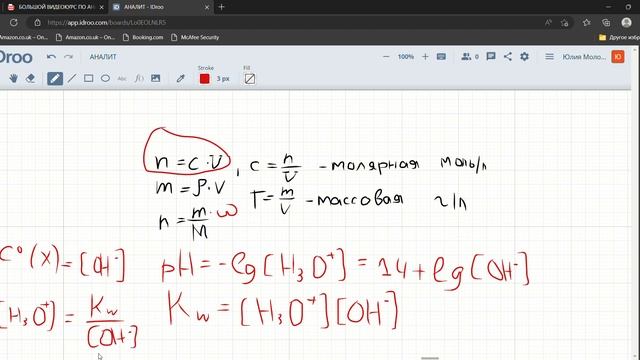 БОЛЬШОЙ ВИДЕОКУРС ПО АН
АНАЛИТ - IDroo
https://app.idroo.com/boards/Lo0EOLNLR5
Amazon.co.uk – On...
Booking.com
McAfee Security
Другое избр
droo
АНАЛИТ
100%
0
Юлия Моло...
Ю
Stroke
3 px
Fill
n = C · V , c = n/V – молярная моль/л
m = ρ · V
T = m/V – массовая г/л
n = m/M · ω
C°(X) = [OH⁻] pH = -lg[H₃O⁺] = 14 + lg[OH⁻]
[H₃O⁺] = Kw/[OH-] Kw = [H₃O⁺][OH⁻]